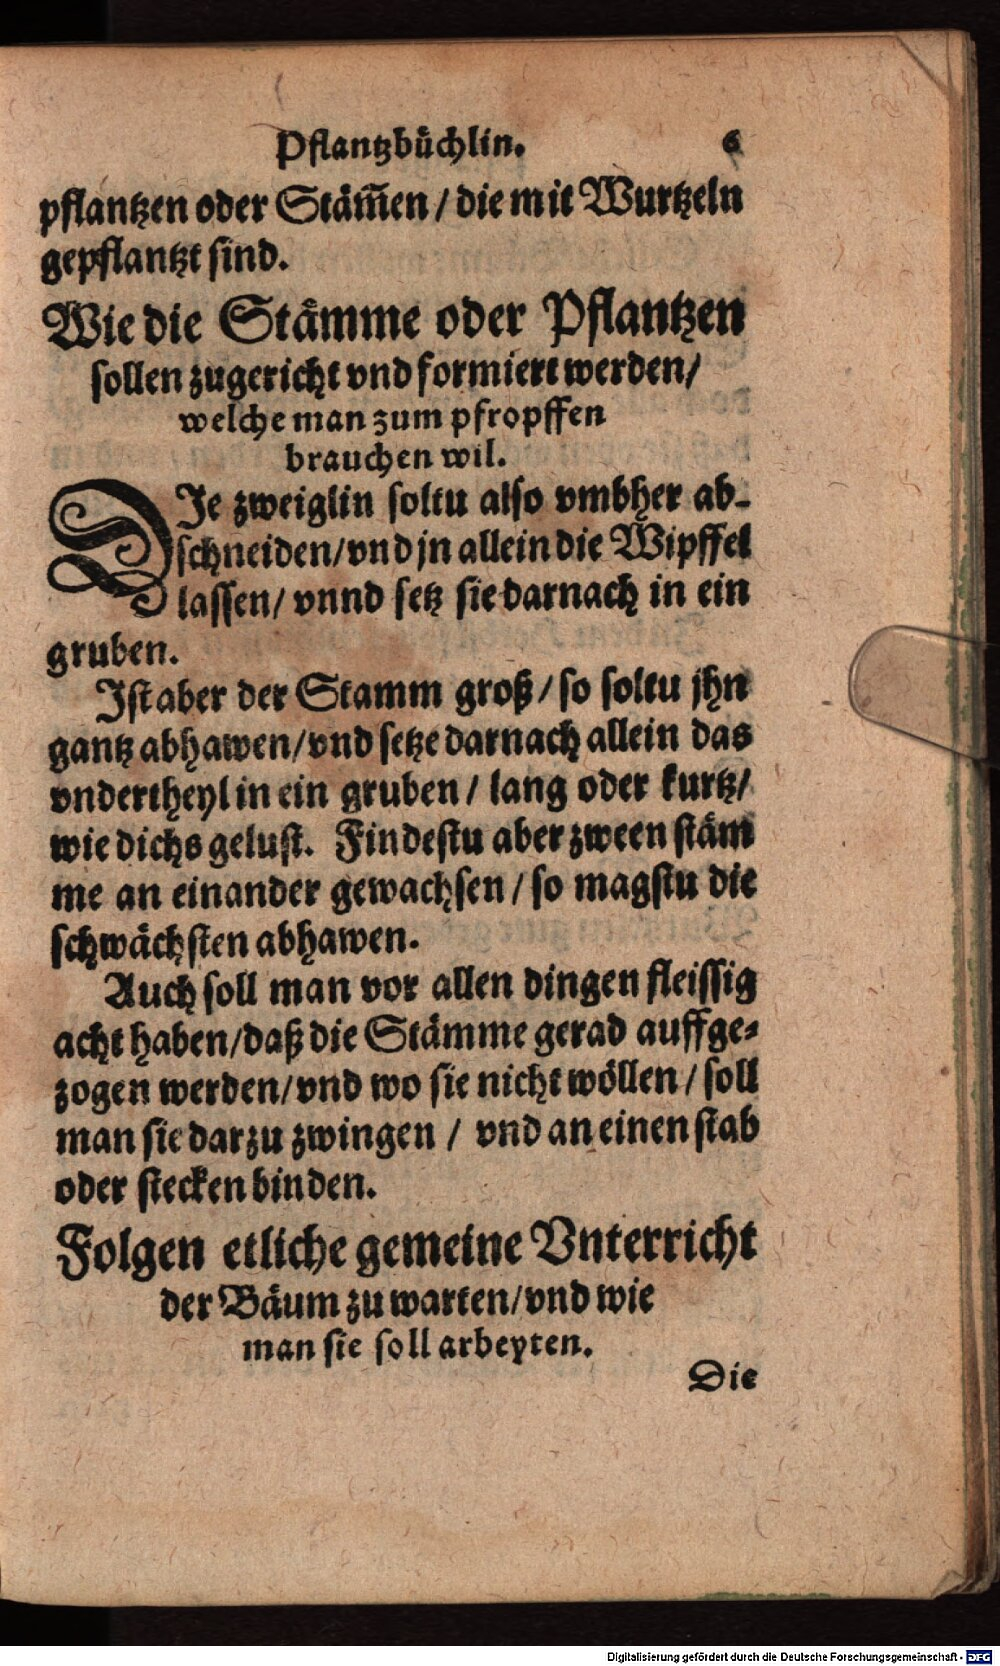 Pflantzbüchlin. 6
pflantzen oder Stäm̄en / die mit Wurtzeln
gepflantzt sind.
Wie die Stämme oder Pflantzen
sollen zugericht vnd formiert werden/
welche man zum pfropffen
brauchen wil.
DIe zweiglin soltu also vmbher ab-
schneiden/vnd jn allein die Wipffel
lassen/ vnnd setz sie darnach in ein
gruben.
Ist aber der Stamm groß / so soltu jhn
gantz abhawen/vnd setze darnach allein das
vndertheyl in ein gruben / lang oder kurtz/
wie dichs gelust. Findestu aber zween stäm
me an einander gewachsen / so magstu die
schwächsten abhawen.
Auch soll man vor allen dingen fleissig
acht haben/daß die Stämme gerad auffge-
zogen werden/vnd wo sie nicht wöllen / soll
man sie darzu zwingen / vnd an einen stab
oder stecken binden.
Folgen etliche gemeine Vnterricht
der Bäum zu warten/vnd wie
man sie soll arbeyten.
Die
Digitalisierung gefördert durch die Deutsche Forschungsgemeinschaft - DFG